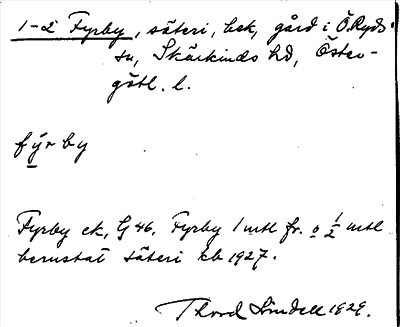 1-2 Fyrby, säteri, bek, gård i Ö. Ryds
sn, Skärkinds hd, Öster-
götl. l.
fy̱rby
Fyrby ek, G 46. Fyrby 1 mtl fr. o ½ mtl
berustat säteri kb 1927.
Thord Lindell 1929.